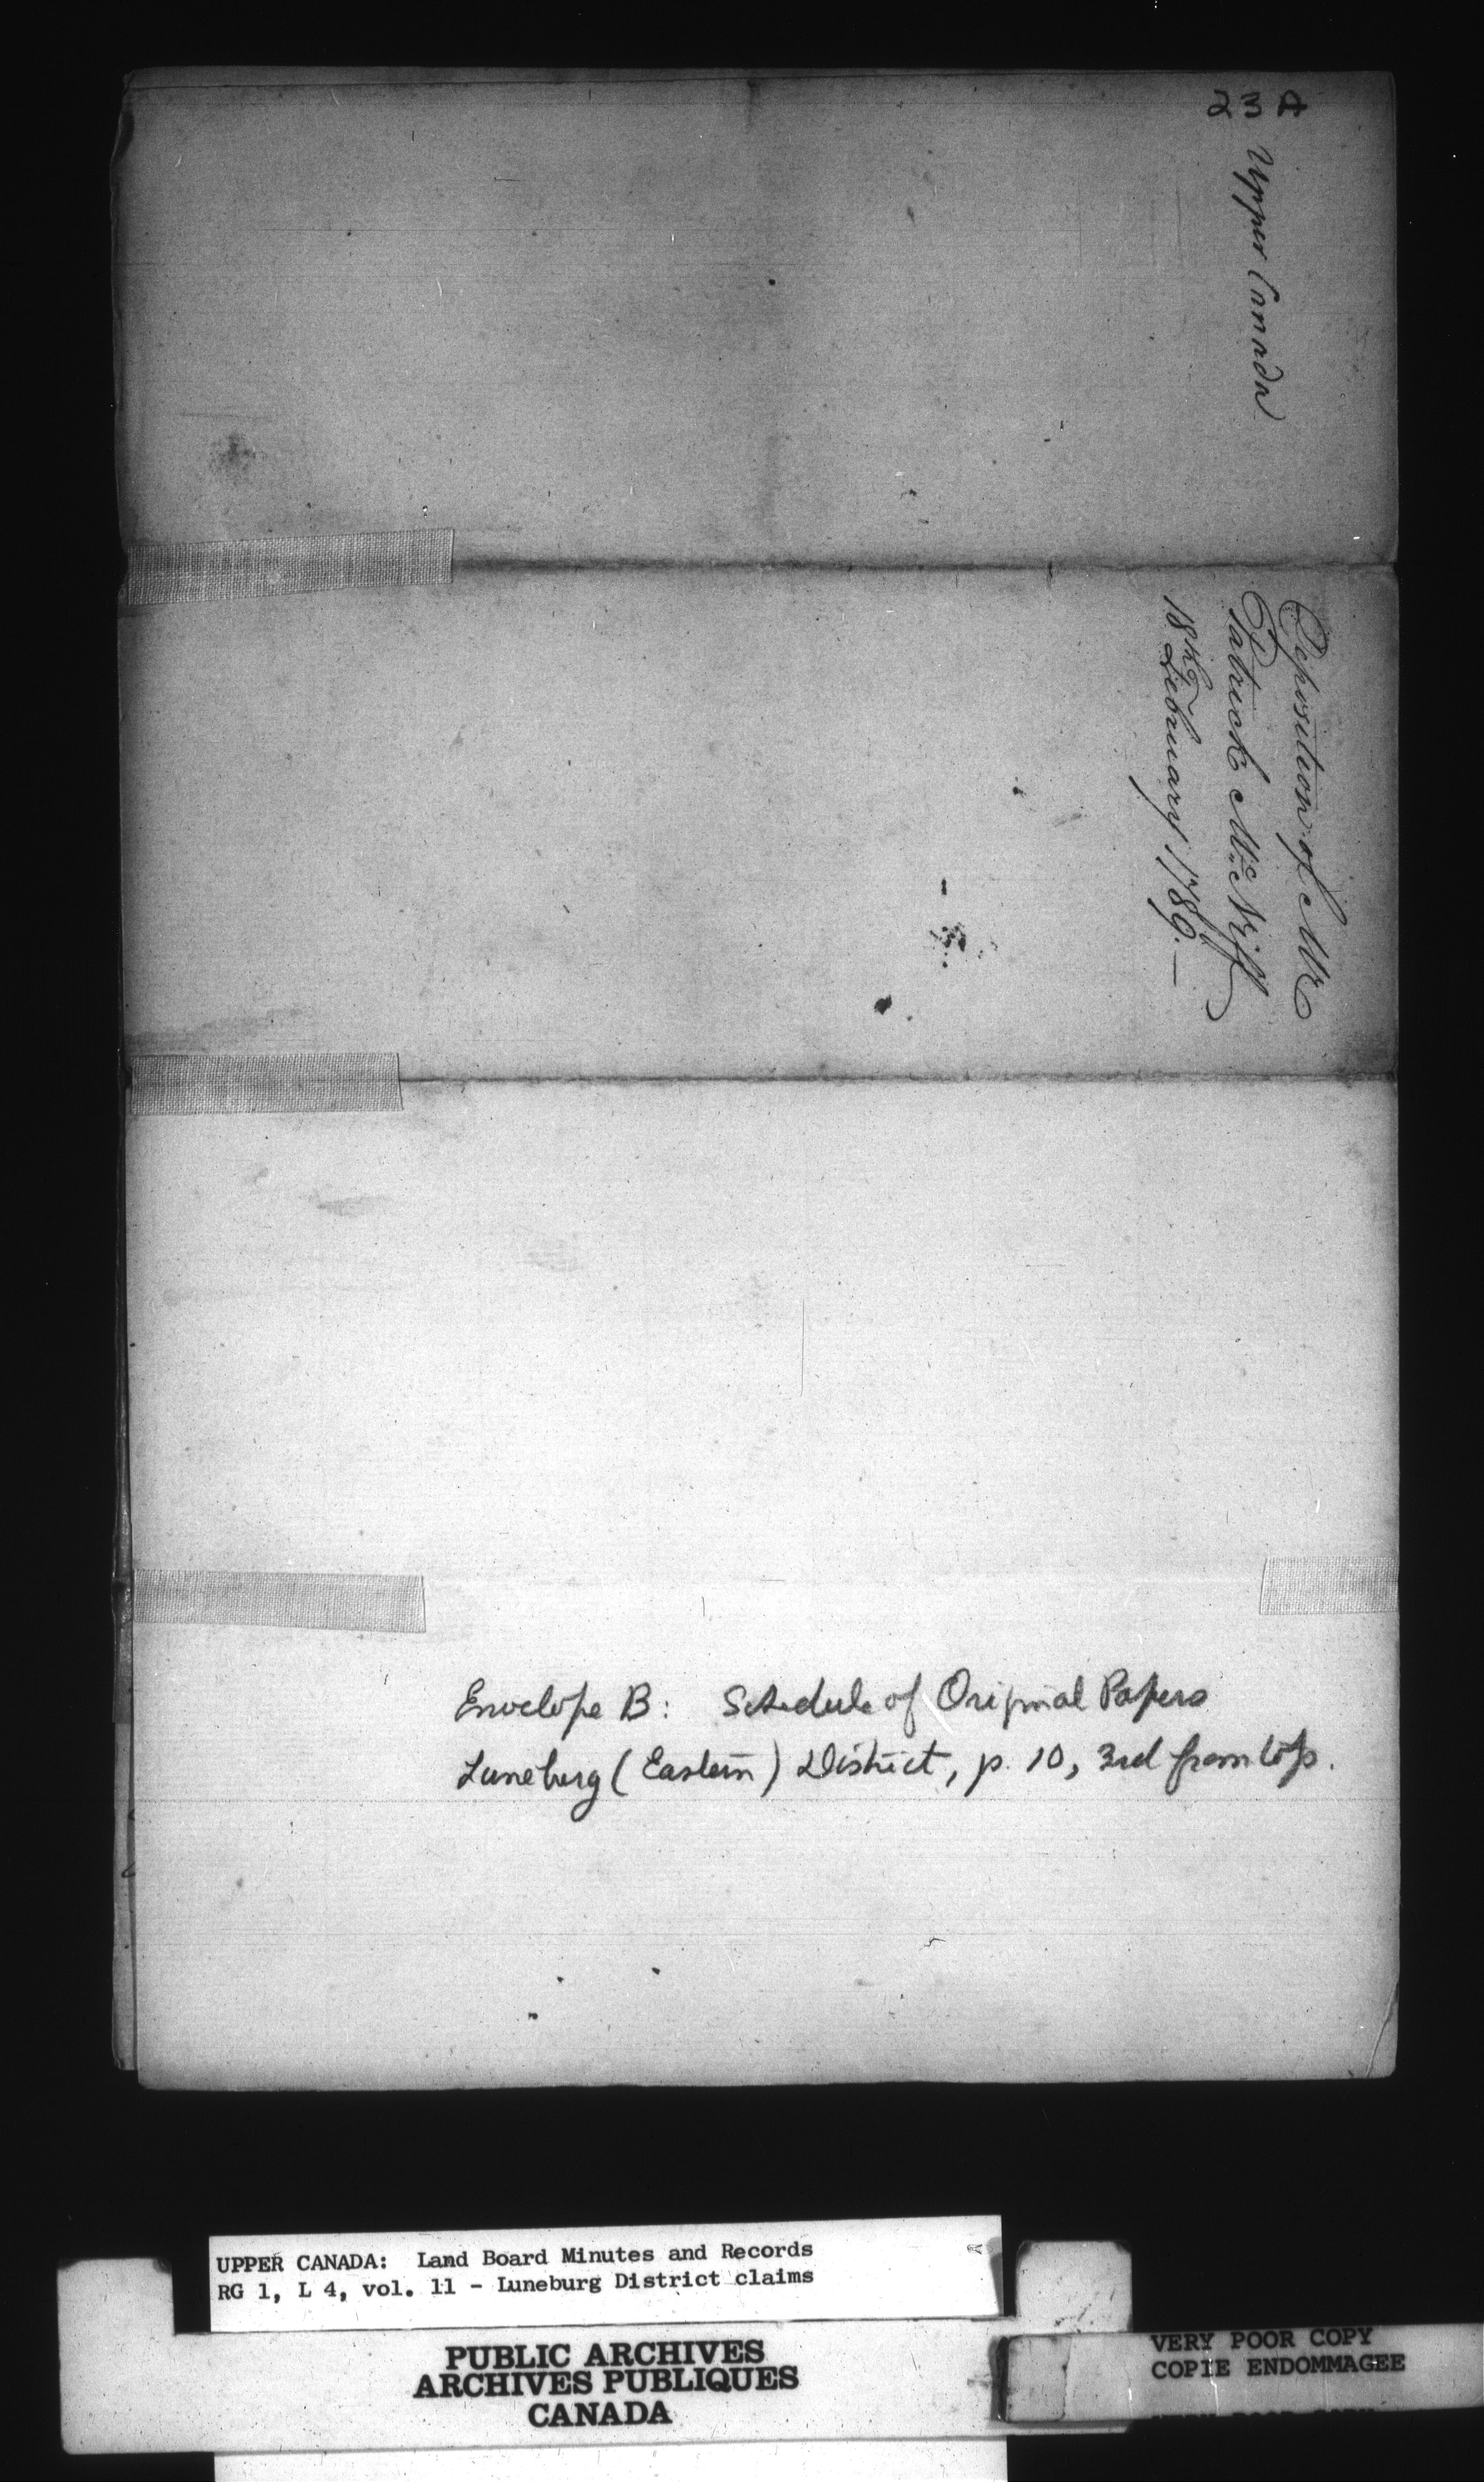 23 A
Upper Canada
Deposition of Mr
Patrick McNiff
18th February 1789.—
Envelope B: Schedule of Original Papers
Luneburg (Eastern) District, p. 10, 3rd from top.
UPPER CANADA: Land Board Minutes and Records
RG 1, L 4, vol. 11 - Luneburg District claims
PUBLIC ARCHIVES
ARCHIVES PUBLIQUES
CANADA
VERY POOR COPY
COPIE ENDOMMAGEE